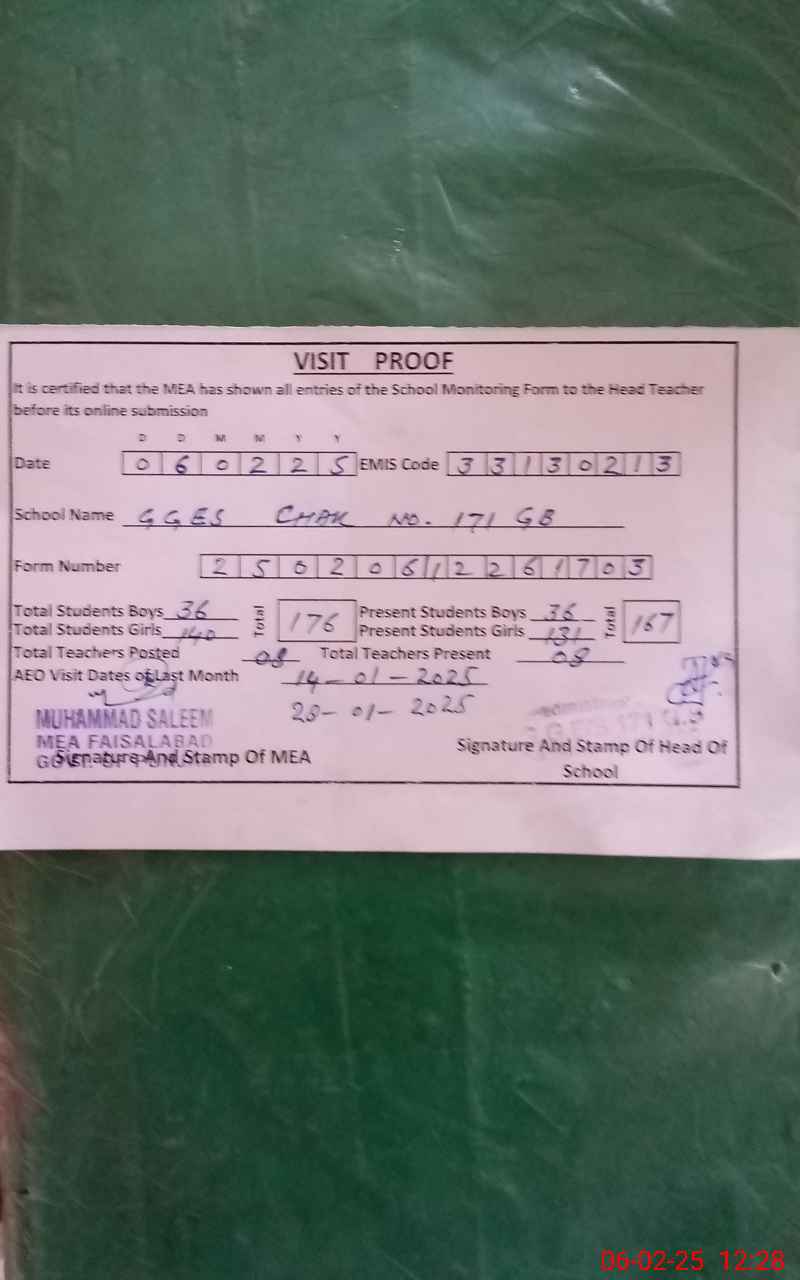 VISIT PROOF
It is certified that the MEA has shown all entries of the School Monitoring Form to the Head Teacher
before its online submission
D D M M Y Y
Date 0 6 0 2 2 5 EMIS Code 3 3 1 3 0 2 1 3
School Name GGES CHAK NO. 171 GB
Form Number 2 5 0 2 0 6 1 2 2 6 1 7 0 3
Total Students Boys 36 Total 176 Present Students Boys 36 Total 167
Total Students Girls 140 Present Students Girls 131
Total Teachers Posted 08 Total Teachers Present 08
AEO Visit Dates of Last Month 14-01-2025
28-01-2025
MUHAMMAD SALEEM
MEA FAISALABAD
Signature And Stamp Of MEA
Signature And Stamp Of Head Of
School
06-02-25 12:28